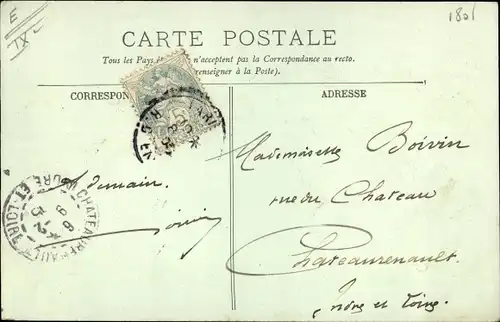 E
1801
TX
CARTE POSTALE
Tous les Pays n'acceptent pas la Correspondance au recto.
renseigner à la Poste).
CORRESPON
ADRESSE
5
PARIS
Mademoiselle Boivin
rue du Chateau
Chateaurenault.
Indre et Loire
A demain.
CHATEAURENAULT
INDRE-ET-LOIRE